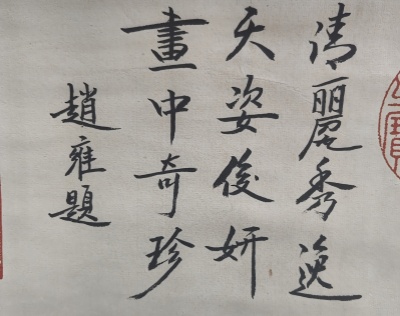 清麗秀逸
天姿俊妍
畫中奇珍
趙雍題